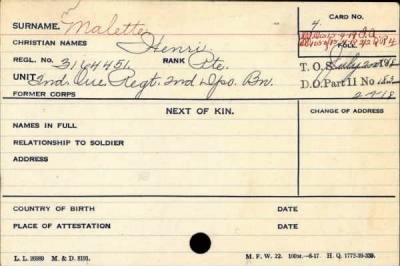 SURNAME. Malette
CARD NO.
4.
CHRISTIAN NAMES Henri
FOLL.
REGL. NO. 3164451 RANK Pte.
T. O. S. July
UNIT 2nd Que. Regt. 2nd Dpo. Bn.
D. O. Part II No
FORMER CORPS
NEXT OF KIN.
CHANGE OF ADDRESS
NAMES IN FULL
RELATIONSHIP TO SOLDIER
ADDRESS
COUNTRY OF BIRTH DATE
PLACE OF ATTESTATION DATE
L. L. 26989 M. & D. 8191.
M. F. W. 22. 100M.—6-17. H. Q. 1772-39-339.